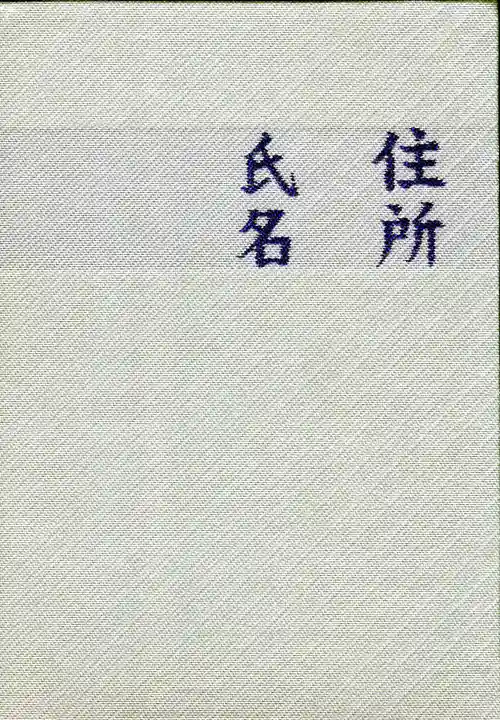 住所
氏名